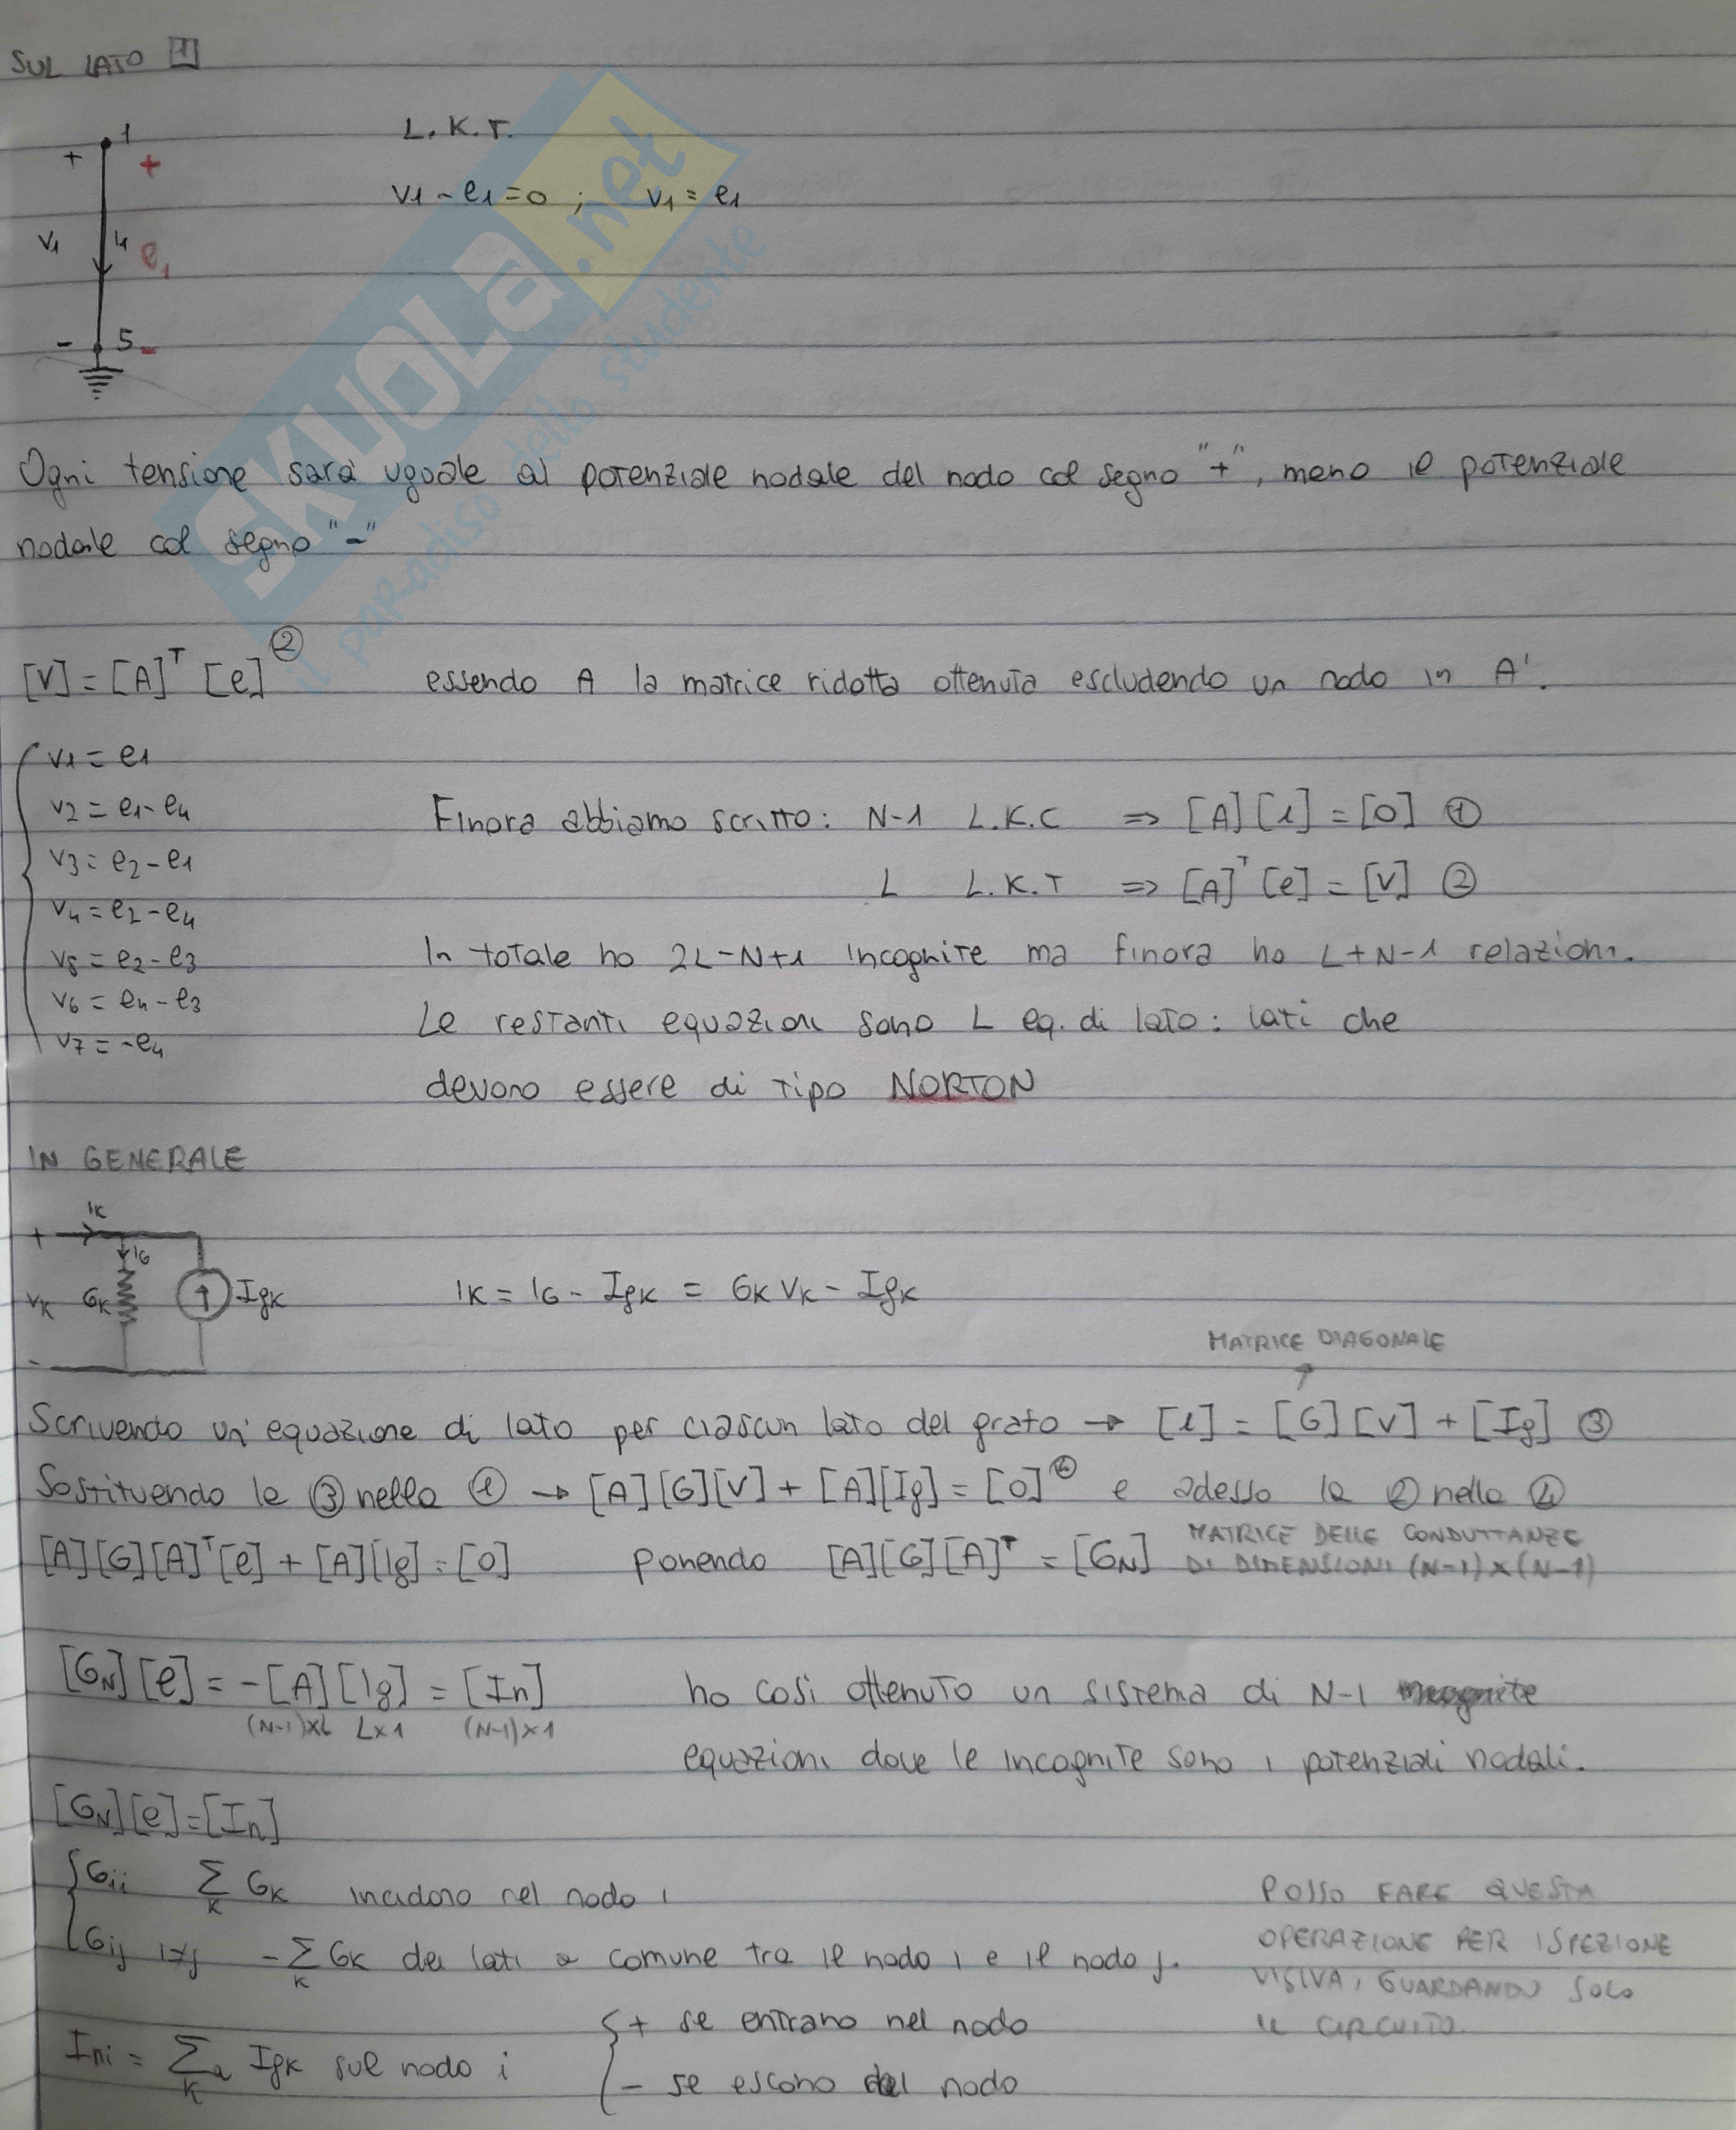 SUL LATO 1
L.K.T.
v1 - e1 = 0 ; v1 = e1
1
+ +
v1 i1 e1
- 5 -
SKUOLA.net
il paradiso dello studente
Ogni tensione sarà uguale al potenziale nodale del nodo col segno "+", meno il potenziale
nodale col segno "-"
[V] = [A]ᵀ [e] ② essendo A la matrice ridotta ottenuta escludendo un nodo in A'.
v1 = e1
v2 = e1 - e4
v3 = e2 - e1
v4 = e2 - e4
v5 = e2 - e3
v6 = e4 - e3
v7 = -e4
Finora abbiamo scritto: N-1 L.K.C => [A][i] = [0] ①
L L.K.T => [A]ᵀ[e] = [V] ②
In totale ho 2L-N+1 incognite ma finora ho L+N-1 relazioni.
Le restanti equazioni sono L eq. di lato: lati che
devono essere di tipo NORTON
IN GENERALE
iK
+ iG
vK GK IgK
-
iK = iG - IgK = GK vK - IgK
MATRICE DIAGONALE
Scrivendo un'equazione di lato per ciascun lato del grafo → [i] = [G][V] + [Ig] ③
Sostituendo la ③ nella ① → [A][G][V] + [A][Ig] = [0] ④ e adesso la ② nella ④
[A][G][A]ᵀ[e] + [A][Ig] = [0] ponendo [A][G][A]ᵀ = [GN] MATRICE DELLE CONDUTTANZE
DI DIMENSIONI (N-1)x(N-1)
[GN][e] = -[A][Ig] = [In] ho così ottenuto un sistema di N-1
(N-1)xL Lx1 (N-1)x1
equazioni dove le incognite sono i potenziali nodali.
[GN][e]=[In]
Gii ∑K GK incidono nel nodo i
Gij i≠j -∑K GK dei lati a comune tra il nodo i e il nodo j.
POSSO FARE QUESTA
OPERAZIONE PER ISPEZIONE
VISIVA, GUARDANDO SOLO
IL CIRCUITO.
Ini = ∑K IgK sul nodo i
+ se entrano nel nodo
- se escono dal nodo